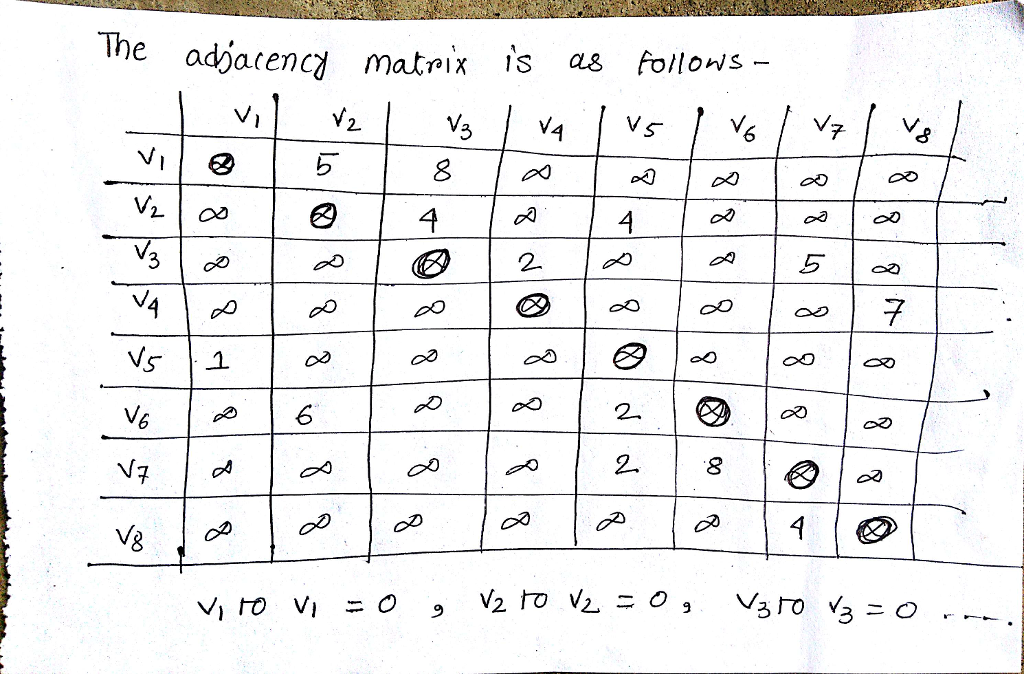 The adjacency matrix is as follows -
V1 V2 V3 V4 V5 V6 V7 V8
V1 ⊗ 5 8 ∞ ∞ ∞ ∞ ∞
V2 ∞ ⊗ 4 ∞ 4 ∞ ∞ ∞
V3 ∞ ∞ ⊗ 2 ∞ ∞ 5 ∞
V4 ∞ ∞ ∞ ⊗ ∞ ∞ ∞ 7
V5 1 ∞ ∞ ∞ ⊗ ∞ ∞ ∞
V6 ∞ 6 ∞ ∞ 2 ⊗ ∞ ∞
V7 ∞ ∞ ∞ ∞ 2 8 ⊗ ∞
V8 ∞ ∞ ∞ ∞ ∞ ∞ 4 ⊗
V1 to V1 = 0 , V2 to V2 = 0, V3 to V3 = 0 ....